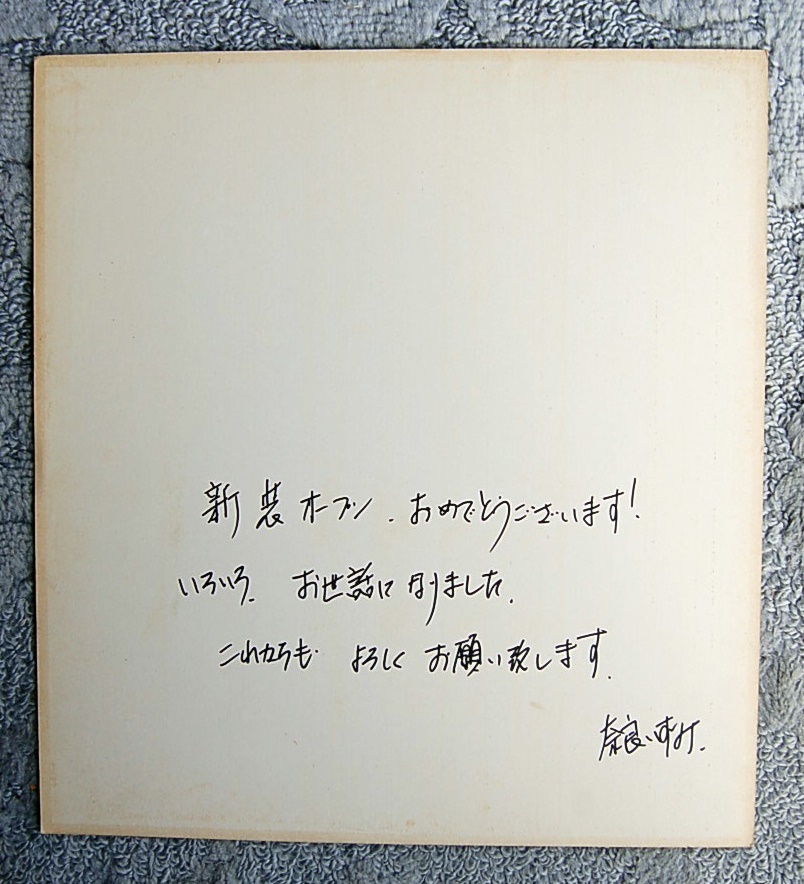 新装オープン.おめでとうございます!
いろいろ. お世話になりました.
これからも よろしく お願い致します.
奈良いずみ.